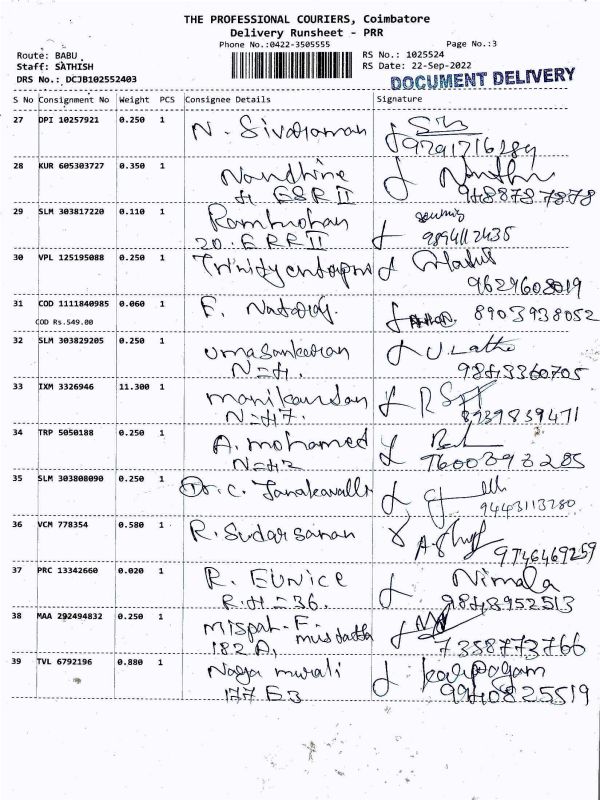 THE PROFESSIONAL COURIERS, Coimbatore
Delivery Runsheet - PRR
Phone No.:0422-3505555 Page No.:3
Route: BABU RS No.: 1025524
Staff: SATHISH RS Date: 22-Sep-2022
DRS No.: DCJB102552403 DOCUMENT DELIVERY
S No Consignment No Weight PCS Consignee Details Signature
27 DPI 10257921 0.250 1 N. Sivaraman
9791716289
28 KUR 605303727 0.350 1 Nandhine
ESR II 9488787878
29 SLM 303817220 0.110 1 Ramhohan
20. ERR II 9894112435
30 VPL 125195088 0.250 1
9629608019
31 COD 1111840985 0.060 1 F. Nataraj. 8903938052
COD Rs.549.00
32 SLM 303829205 0.250 1 Umasankaran U. Latha
9843360705
33 IXM 3326946 11.300 1 manikandan
8939839471
34 TRP 5050188 0.250 1 A. mohamed
7600393285
35 SLM 303808090 0.250 1 Dr. C. Janakavalli
9443113280
36 VCM 778354 0.580 1 R. Sudarsanan
9746469259
37 PRC 13342660 0.020 1 R. EUNICE Nimala
9848952513
38 MAA 292494832 0.250 1 Mispah. F.
182 A, 7358773766
39 TVL 6792196 0.880 1 Naga murali kalpagam
177 E3 9940825519